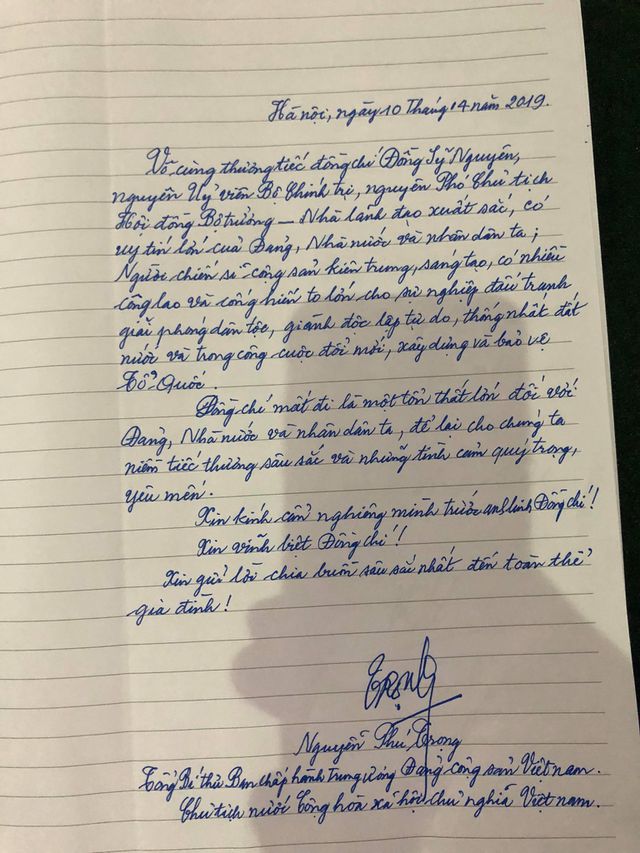 Hà nội, ngày 10 Tháng 4 năm 2019.
Vô cùng thương tiếc đồng chí Đồng Sỹ Nguyên,
nguyên Uỷ viên Bộ Chính trị, nguyên Phó Chủ tịch
Hội đồng Bộ trưởng — Nhà lãnh đạo xuất sắc, có
uy tín lớn của Đảng, Nhà nước và nhân dân ta;
Người chiến sĩ cộng sản kiên trung, sáng tạo, có nhiều
công lao và cống hiến to lớn cho sự nghiệp đấu tranh
giải phóng dân tộc, giành độc lập tự do, thống nhất đất
nước và trong công cuộc đổi mới, xây dựng và bảo vệ
Tổ Quốc.
Đồng chí mất đi là một tổn thất lớn đối với
Đảng, Nhà nước và nhân dân ta, để lại cho chúng ta
niềm tiếc thương sâu sắc và những tình cảm quý trọng,
yêu mến.
Xin kính cẩn nghiêng mình trước anh linh Đồng chí!
Xin vĩnh biệt Đồng chí!
Xin gửi lời chia buồn sâu sắc nhất đến toàn thể
gia đình!
Trọng
Nguyễn Phú Trọng
Tổng Bí thư Ban chấp hành trung ương Đảng cộng sản Việt nam.
Chủ tịch nước Cộng hòa xã hội chủ nghĩa Việt nam.